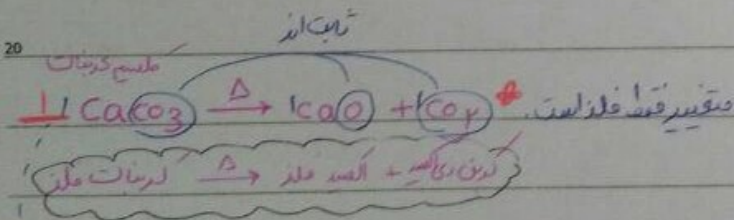 20
ثابت اند
کلسیم کربنات
1 CaCO3 Δ→ 1CaO + 1CO۲ * متغییر فقط فلز است.
کربنات فلز Δ→ اکسید فلز + کربن دی اکسید